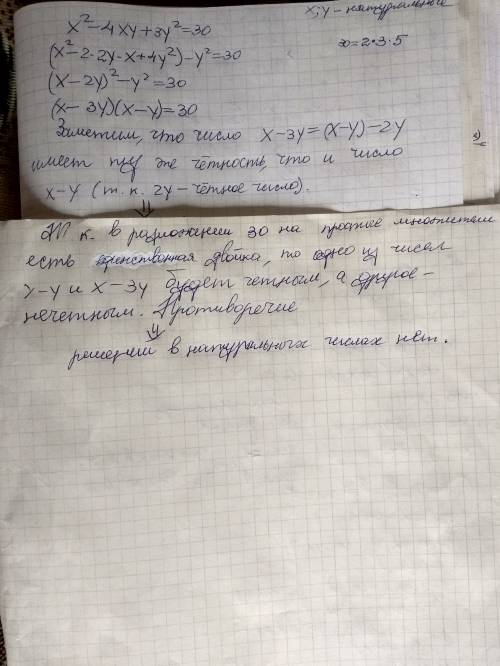 x²-4xy+3y²=30
x;y - натуральные
(x²-2·2y·x+4y²)-y²=30
30=2·3·5
(x-2y)²-y²=30
(x-3y)(x-y)=30
Заметим, что число x-3y=(x-y)-2y
имеет ту же чётность, что и число
x-y (т.к. 2y - чётное число).
⇓
Т.к. в разложении 30 на простые множители
есть единственная двойка, то одно из чисел
x-y и x-3y будет четным, а другое -
нечетным. Противоречие
⇓
решений в натуральных числах нет.